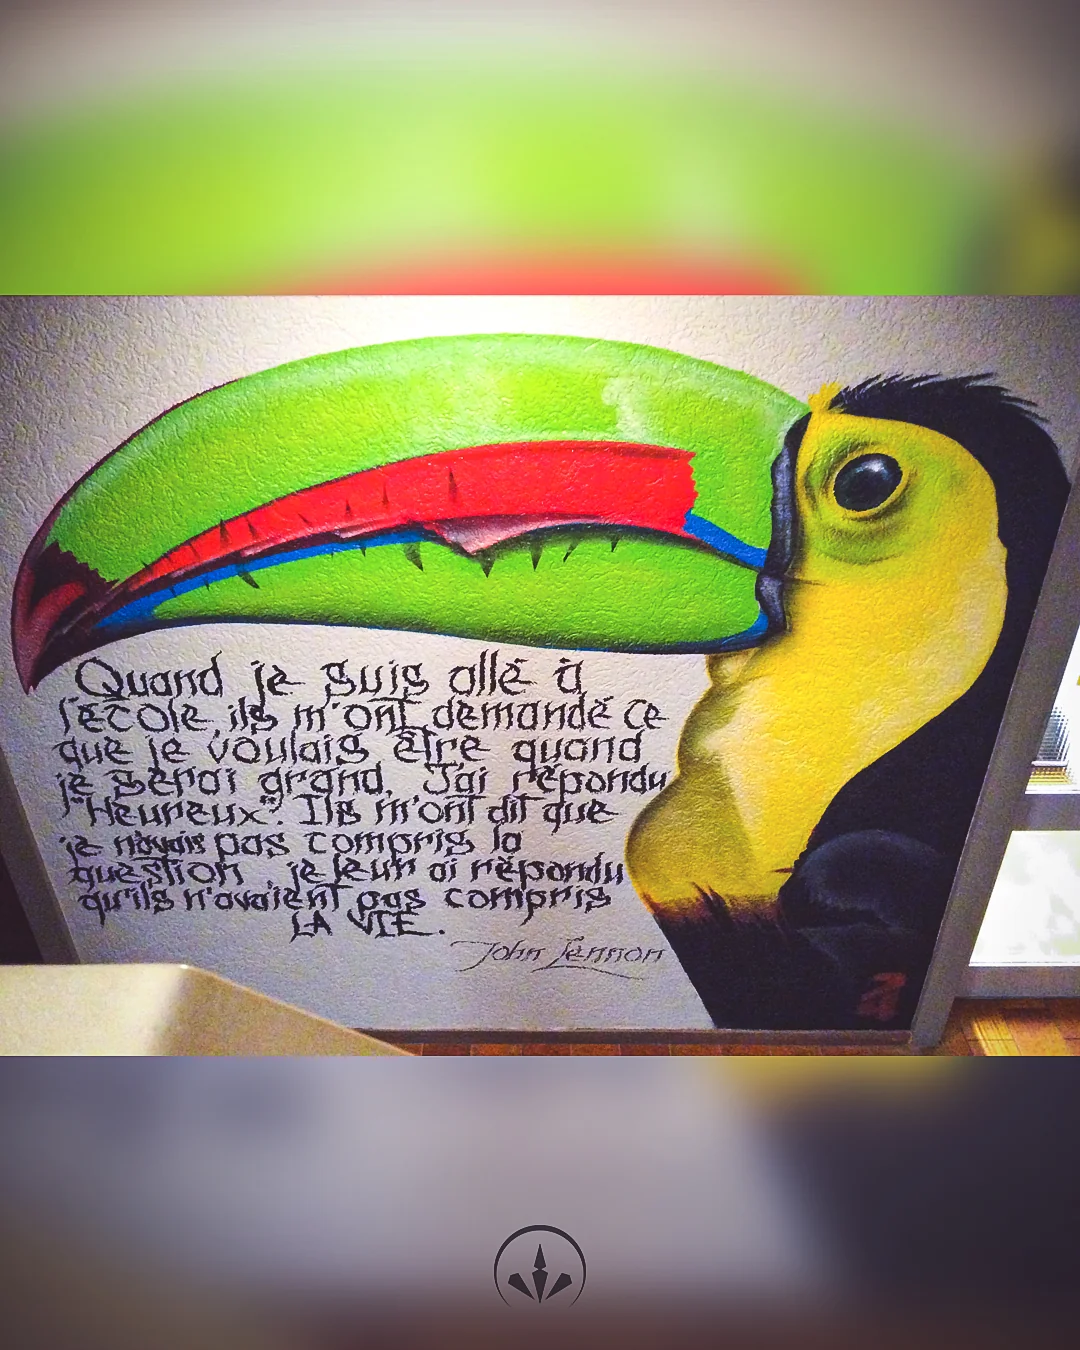 Quand je suis allé à
l'école, ils m'ont demandé ce
que je voulais être quand
je serai grand. J'ai répondu
"Heureux". Ils m'ont dit que
je n'avais pas compris la
question, je leur ai répondu
qu'ils n'avaient pas compris
LA VIE.
John Lennon